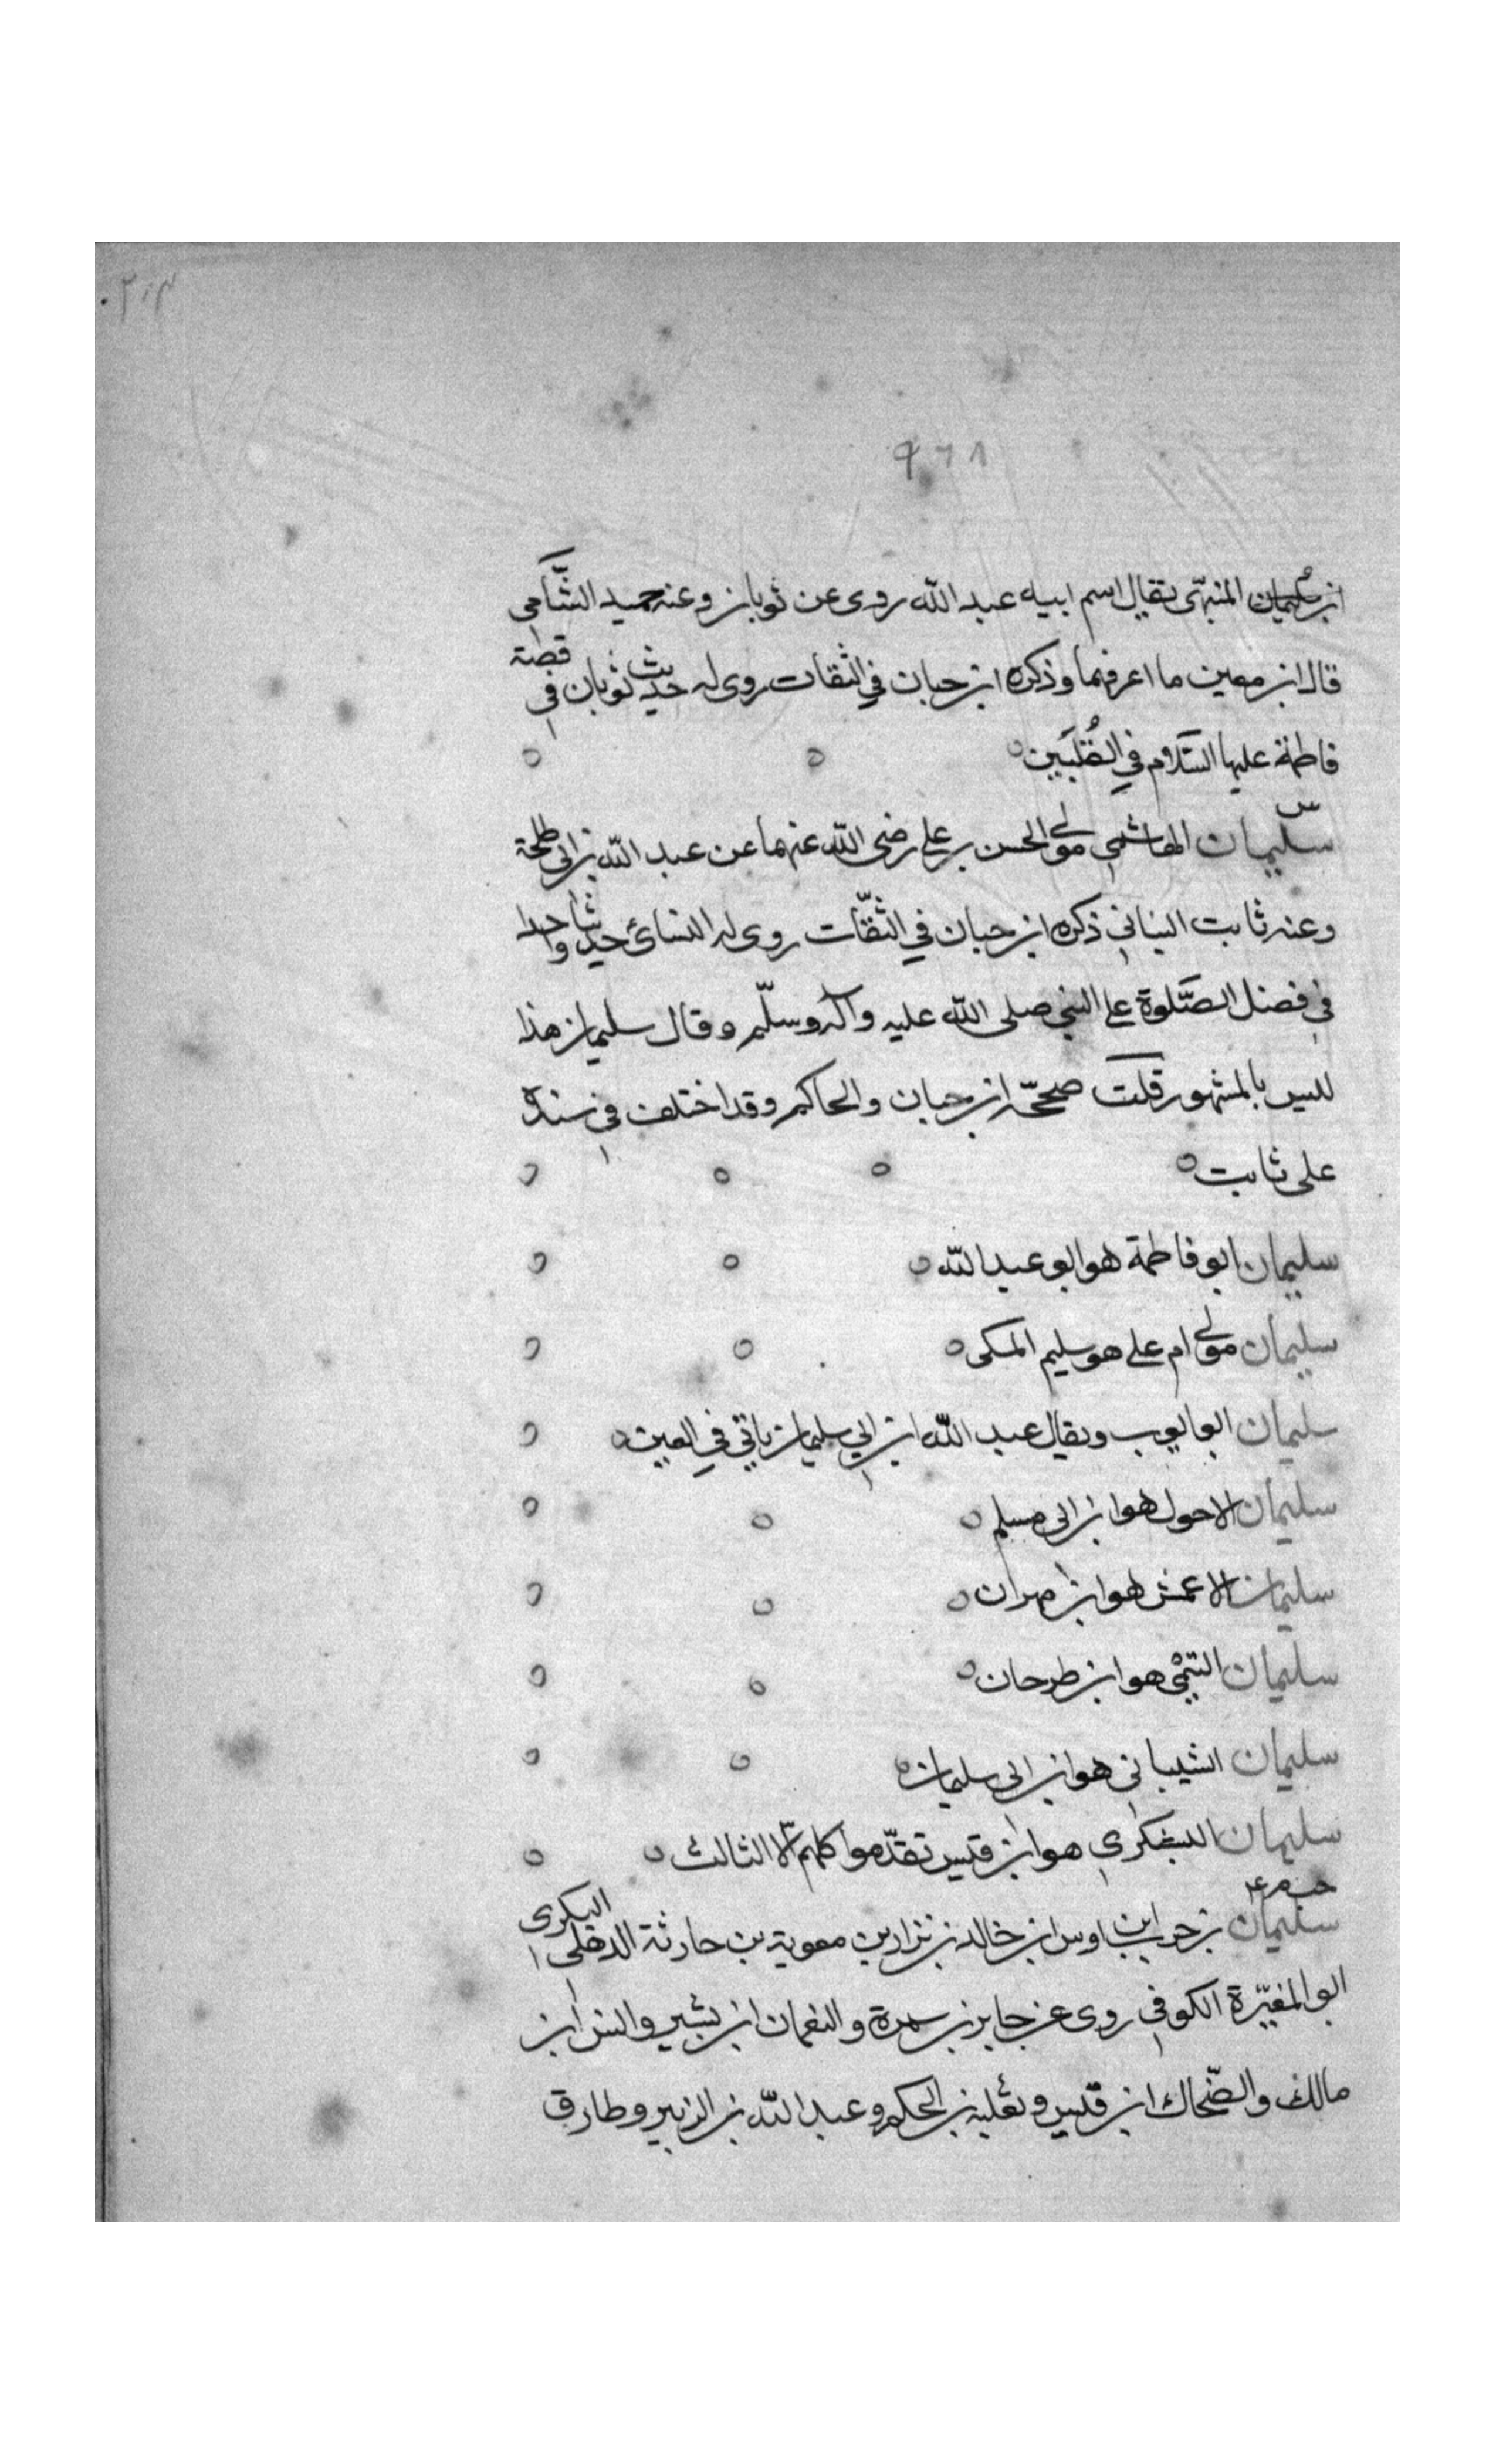 ٢١٣
٩٦٨
ابن سليمان المنبهى يقال اسم ابيه عبد الله روى عن ثوبان وعنه حميد الشامى
قال ابن معين ما اعرفهما وذكره ابن حبان في الثقات روى له حديث ثوبان في قصة
فاطمة عليها السّلام في القُلْبَين
س
سليمان الهاشمي مولى الحسن بن علي رضى الله عنهما عن عبد الله بن ابى طلحة
وعنه ثابت البناني ذكره ابن حبان في الثقّات روى له النسائ حديثا واحدا
في فضل الصَّلوة على النبي صلى الله عليه وآله وسلّم وقال سليمان هذا
ليس بالمشهور قلت صححّه ابن حبان والحاكم وقد اختلف في سنده
على ثابت
سليمان ابو فاطمة هو ابو عبد الله
سليمان مولى ام علي هو سليم المكى
سليمان ابو ايوب ويقال عبد الله ابن ابي سليمان ياتي في العين
سليمان الاحول هو ابن ابى مسلم
سليمان الاعمش هو ابن مهران
سليمان التيمي هو ابن طرحان
سليمان الشيبانى هو ابن ابى سليمان
سليمان اليشكرى هو ابن قيس تقدّموا كلهم الّا الثالث
سليمان بن حرب ابن اوس ابن خالد بن نزار بن معوية بن حارثة الذهلى البكرى
ابو المغيّرة الكوفي روى عن جابر بن سمرة والنعمان ابن بشير وانس ابن
مالك والضّحاك ابن قيس وثعلبة بن الحكم وعبد الله بن الزبير وطارق